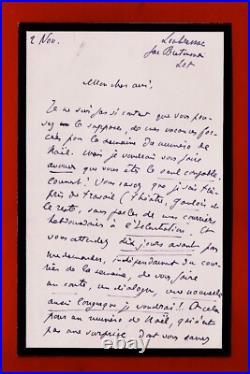 2 Nov.
Labrasse
par Bretenoux
Lot
Mon cher ami,
Je ne suis pas si content que vous pou-
vez le supposer, de nos vacances for-
cées pour la semaine du numéro de
Noël. Mais je voudrais vous faire
avouer que vous êtes le seul coupable,
comment! Vous savez que je suis têt
pris de travail (Théâtre, Gaulois de
le reste, sans parler de mes courriers
hebdomadaires à l'Illustration. Et
vous attendez dix jours avant pour
me demander, indépendamment du cour-
rier de la semaine, de vous faire
un conte, un dialogue, une nouvelle
aussi longue que je voudrai!! Et cela
pour un numéro de Noël, qui n'est
pas une surprise, dont vous savez